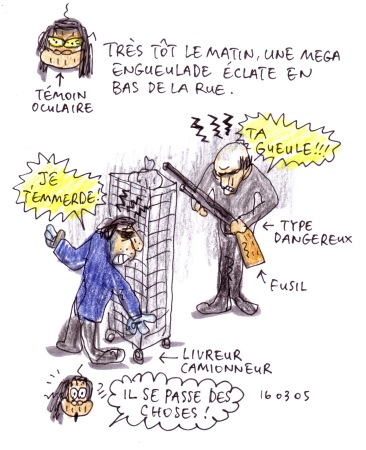 TRÈS TÔT LE MATIN, UNE MEGA
ENGUEULADE ÉCLATE EN
BAS DE LA RUE.
TÉMOIN
OCULAIRE
TA
GUEULE!!!
JE
T'EMMERDE.
TYPE
DANGEREUX
FUSIL
LIVREUR
CAMIONNEUR
IL SE PASSE DES
CHOSES!
16 03 05